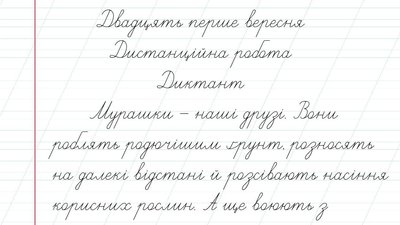 Двадцять перше вересня
Дистанційна робота
Диктант
Мурашки – наші друзі. Вони
роблять родючішим ґрунт, розносять
на далекі відстані й розсівають насіння
корисних рослин. А ще воюють з